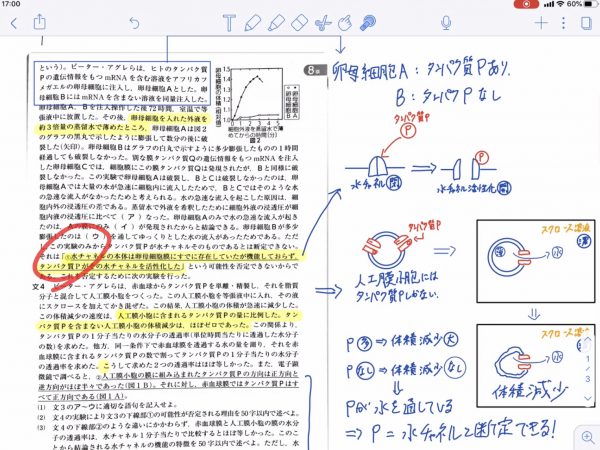 17:00
60%
という)。ピーター・アグレらは，ヒトのタンパク質
Pの遺伝情報をもつmRNAを含む溶液をアフリカツ
メガエルの卵母細胞に注入し，卵母細胞Aとした。卵
母細胞BにはmRNAを含まない溶液を同量注入した。
卵母細胞A，Bを注入操作した後72時間，室温で等
張液中に放置した。その後，卵母細胞を入れた外液を
約3倍量の蒸留水で薄めたところ，卵母細胞Aは図2
のグラフの黒丸で示したように膨張して数分の後に破
裂した(矢印)。卵母細胞Bはグラフの白丸で示すように多少膨張したものの1時間
経過しても破裂しなかった。別な膜タンパク質Qの遺伝情報をもつmRNAを注入
した卵母細胞Cでは，細胞膜にこの膜タンパク質Qは発現されたが，Bと同様に破
裂しなかった。この実験で卵母細胞Aは破裂し，BとCは破裂しなかったのは，卵
母細胞Aでは大量の水が急速に細胞内に流入したためで，BとCではそのような水
の急速な流入がなかったためと考えられる。水の急速な流入を起こした原因は，細
胞内外の浸透圧の差である。蒸留水で外液を希釈したために細胞外液の浸透圧が細
胞内液の浸透圧に比べて(ア)なった。卵母細胞Aのみで水の急速な流入が起き
たのは，Aの膜のみ(イ)が発現されたからと結論できる。卵母細胞Bが多少
膨張したのは(ウ)を通してゆっくりとした水の流入があったためである。ただ
し，この実験のみからタンパク質Pが水チャネルそのものであるとは断定できない。
それは「①水チャネルの本体は卵母細胞膜にすでに存在していたが機能しておらず，
タンパク質Pがその水チャネルを活性化した」という可能性を否定できないからで
ある。これを否定するために次の実験を行った。
文4 ピーター・アグレらは，赤血球からタンパク質Pを単離・精製し，それを脂質
分子と混合して人工膜小胞をつくった。この人工膜小胞を等張液中に入れ，その液
にスクロースを加えてかき混ぜた。この結果，人工膜小胞の体積が急速に減少した。
この体積減少の速度は，人工膜小胞に含まれるタンパク質Pの量に比例した。タン
パク質Pを含まない人工膜小胞の体積減少は，ほぼゼロであった。この関係より，
タンパク質Pの1分子当たりの水分子の透過率(単位時間当たりに透過した水分子
の数)を求めた。他方，同一条件下で赤血球膜を通過する水の量を測り，それを赤
血球膜に含まれるタンパク質Pの数で割ってタンパク質Pの1分子当たりの水分子
の透過率を求めた。こうして求めた2つの透過率はほぼ等しかった。また，電子顕
微鏡で調べると，②人工小胞の膜に組み込まれたタンパク質Pの方向は正方向と
逆方向がほぼ半々であった(図1B)。それに対し，赤血球膜ではタンパク質Pはす
べて正方向である(図1A)。
(1) 文3のア～ウに適切な語句を記せよ。
(2) 文4の実験により文3の下線部①の可能性が否定される理由を50字以内で述べよ。
(3) 文4の下線部②のような違いにかかわらず，赤血球膜と人工膜小胞の膜の水分
子の透過率は，水チャネル1分子当たりで比較するとほぼ等しかった。このこ
とから結論される水チャネルの機能の特徴を50字以内で述べよ。
卵母細胞の体積(相対値)
1.5
1.4
1.3
1.2
1.1
1.0
0 1 2 3 4 5
細胞外液を蒸留水で薄
めてからの時間(分)
図2
卵母細胞A
卵母細胞B
8章
卵母細胞A：タンパク質Pあり，
B：タンパクPなし
タンパク質P
P
水チャネル 閉
P
水チャネル活性化 開
タンパク質P
人工膜小胞には
タンパク質Pしかない。
スクロース溶液
水
スクロース
水
体積減少
P 多 ⇒ 体積減少 大
P なし ⇒ 体積減少 なし
Pが水を通している
⇒ P = 水チャネルと断定できる!
1
3